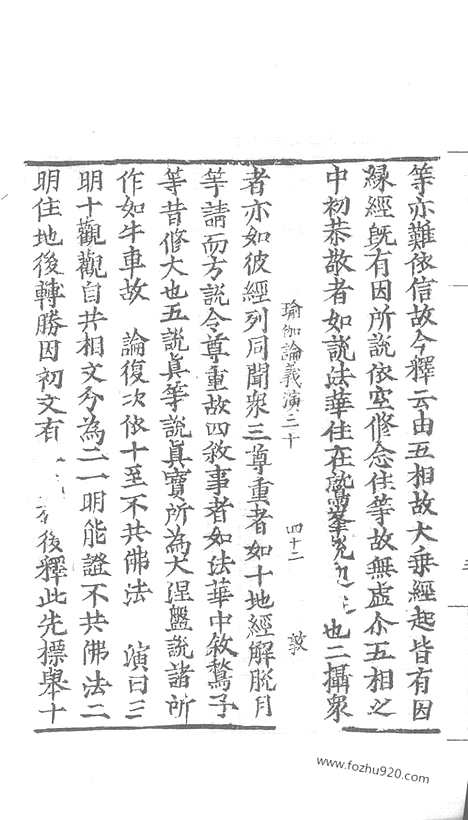 等亦難依信故今釋云由五相故大乗經起皆有因
縁經既有因所說依空修念住等故無虛介五相之
中初恭敬者如說法華住在鷲峯 也二攝衆
瑜伽論義演三十 四十二 敦
者亦如彼經列同聞衆三尊重者如十地經解脫月
等請而方說令尊重故四敘事者如法華中敘鶖子
等昔修大也五說真等說真實所為大涅盤說諸所
作如牛車故 論復次依十至不共佛法 演曰三
明十觀觀自共相文分為二一明能證不共佛法二
明住地後轉勝因初文有 後釋此先標舉十
www.fozhu920.com